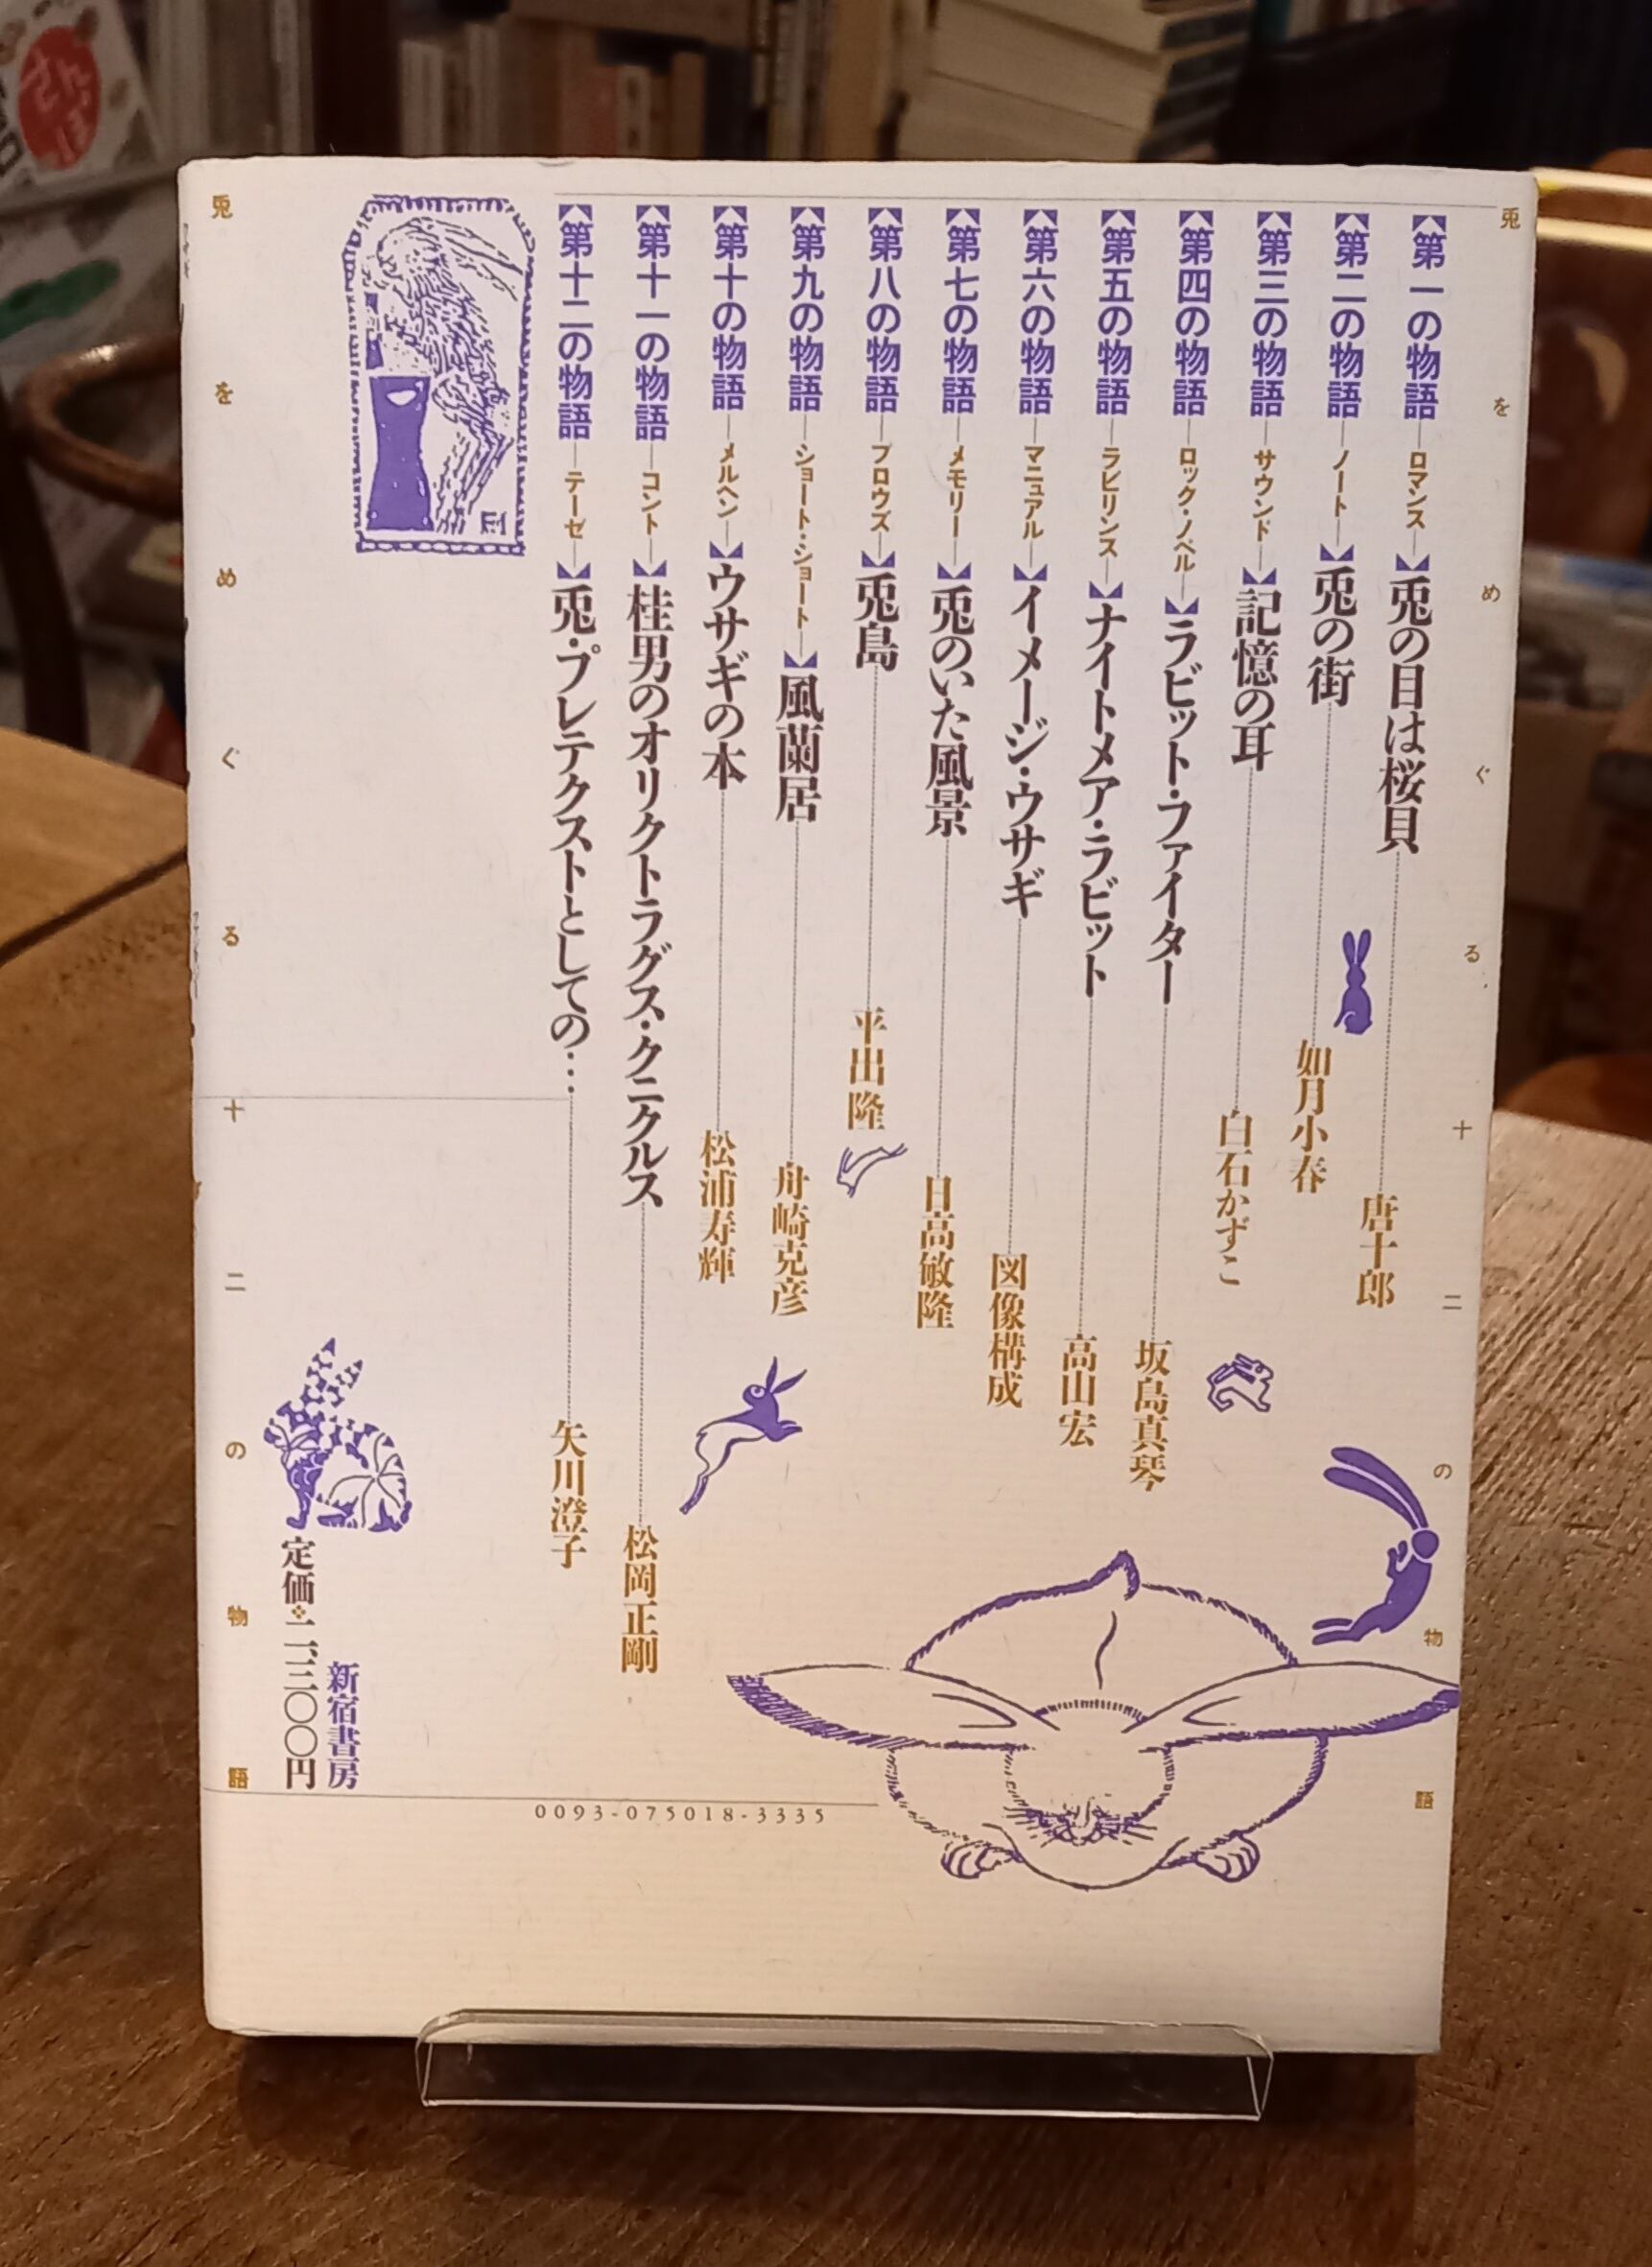 兎をめぐる十二の物語
【第一の物語―ロマンス―】兎の目は桜貝 唐十郎
【第二の物語―ノート―】兎の街 如月小春
【第三の物語―サウンド―】記憶の耳 白石かずこ
【第四の物語―ロック・ノベル―】ラビット・ファイター 坂島真琴
【第五の物語―ラビリンス―】ナイトメア・ラビット 高山宏
【第六の物語―マニュアル―】イメージ・ウサギ 図像構成
【第七の物語―メモリー―】兎のいた風景 日高敏隆
【第八の物語―プロウズ―】兎島 平出隆
【第九の物語―ショート・ショート―】風蘭居 舟崎克彦
【第十の物語―メルヘン―】ウサギの本 松浦寿輝
【第十一の物語―コント―】桂男のオリクトラグス・クニクルス 松岡正剛
【第十二の物語―テーゼ―】兎・プレテクストとしての… 矢川澄子
新宿書房
定価❖二、三〇〇円
0093-075018-3335
兎をめぐる十二の物語